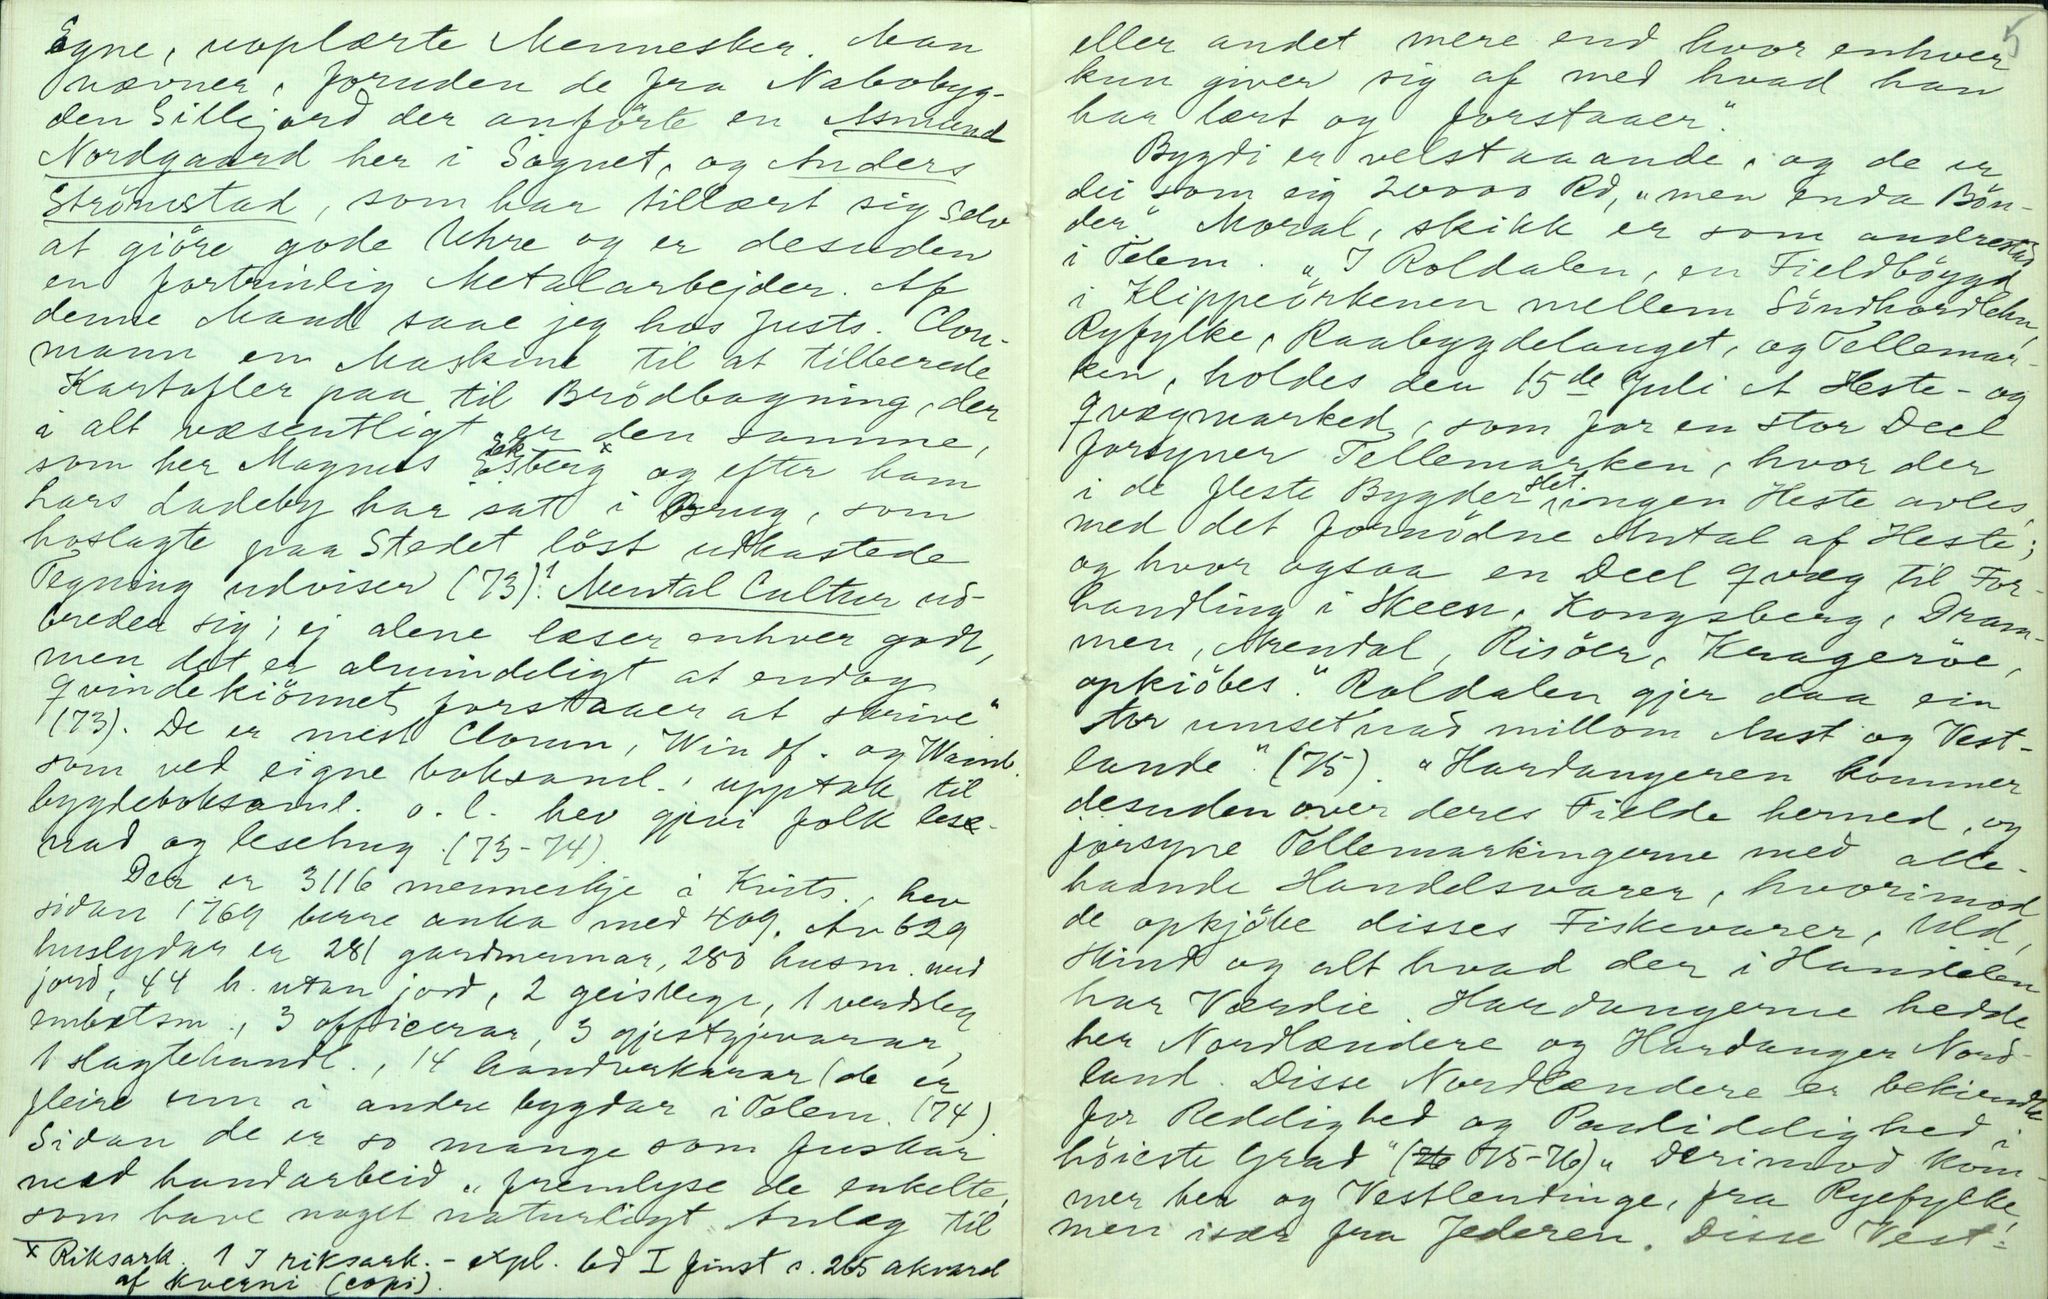 Egne, uoplærte Mennesker. Man
nævner, foruden de fra Nabobyg-
den Sillejord der anförte en Asmund
Nordgaard her i Sognet, og Anders
Strömstad, som har tillært sig selv
at giöre gode Uhre og er desuden
en fortrinlig Metalarbejder. Af
denne Mand saae jeg hos Justs. Clou-
mann en Maskine til at tilberede
Kartofler paa til Brödbagning, der
i alt væsentligt er den samme,
som her Magnus Eekberg x og efter ham
Lars Ladeby har sat i Brug, som
hoslagte paa Stedet löst udkastede
Tegning udviser (73).¹ Mental Cultur ud-
breder sig; ej alene læser enhver godt,
men det er almindeligt at endog
qvindekiönnet forstaaer at skrive"
(73). De er mest Cloum, Windf. og Wainb.
som ved eigne boksaml., upptak til
bygdeboksaml. o. l. hev gjevi folk lese-
nad og lesehug (73-74)
Der er 3116 menneskje i Kvits., hev
sidan 1769 berre auka med 409. Av 629
huslydar er 281 gardmennar, 280 husm. med
jord, 44 h. utan jord, 2 geistlege, 1 verdsleg
embætsm., 3 officerar, 3 gjestgjevarar,
1 slagtehandl., 14 handverkarar (de er
fleire enn i andre bygdar i Telem. (74)
Sidan de er so mange som fuskar
med handarbeid, "fremlyse de enkelte,
som have noget naturligt Anlæg til
x Riksark. 1 I riksark. - expl. bd I finst s. 265 akvarel
af kverni (copi).
5
eller andet mere end hvor enhver
kun giver sig af med hvad han
har lært og forstaaer."
Bygdi er velstaaande, og de er
dei som eig 20000 Rd, "men enda Bön-
der." Moral, skikk er som andrestad
i Telem. "I Roldalen, en Fieldböygd
i Klippeörkenen mellem Söndhordlehn,
Ryfylke, Raabygdelauget, og Tellemar-
ken, holdes den 15de Juli et Heste- og
Qvægmarked, som for en stor Deel
forsyner Tellemarken, hvor der
i de fleste Bygder slet ingen Heste avles,
med det fornödne Antal af Heste;
og hvor ogsaa en Deel Qvæg til For-
handling i Skeen, Kongsberg, Dram-
men, Arendal, Risöer, Kragerøe,
opkiöbes." Roldalen gjer daa ein
stor umsetnad millom Aust og Vest-
lande" (75). "Hardangeren kommer
desuden over deres Fielde herned, og
forsyne Tellemarkingerne med alle-
haande Handelsvarer, hvorimod
de opkjöbe disses Fiskevarer, Uld,
Skind og alt hvad der i Handelen
har Værdie. Hardangerne hedde
her Nordlændere og Hardanger Nord-
land. Disse Nordlændere er bekiendte
for Reddighed og Paalidelighed i
höieste Grad" (75-76) "Derimod kom-
mer her og Vestlendinge, fra Ryefylke,
men især fra Jederen. Disse Vest-